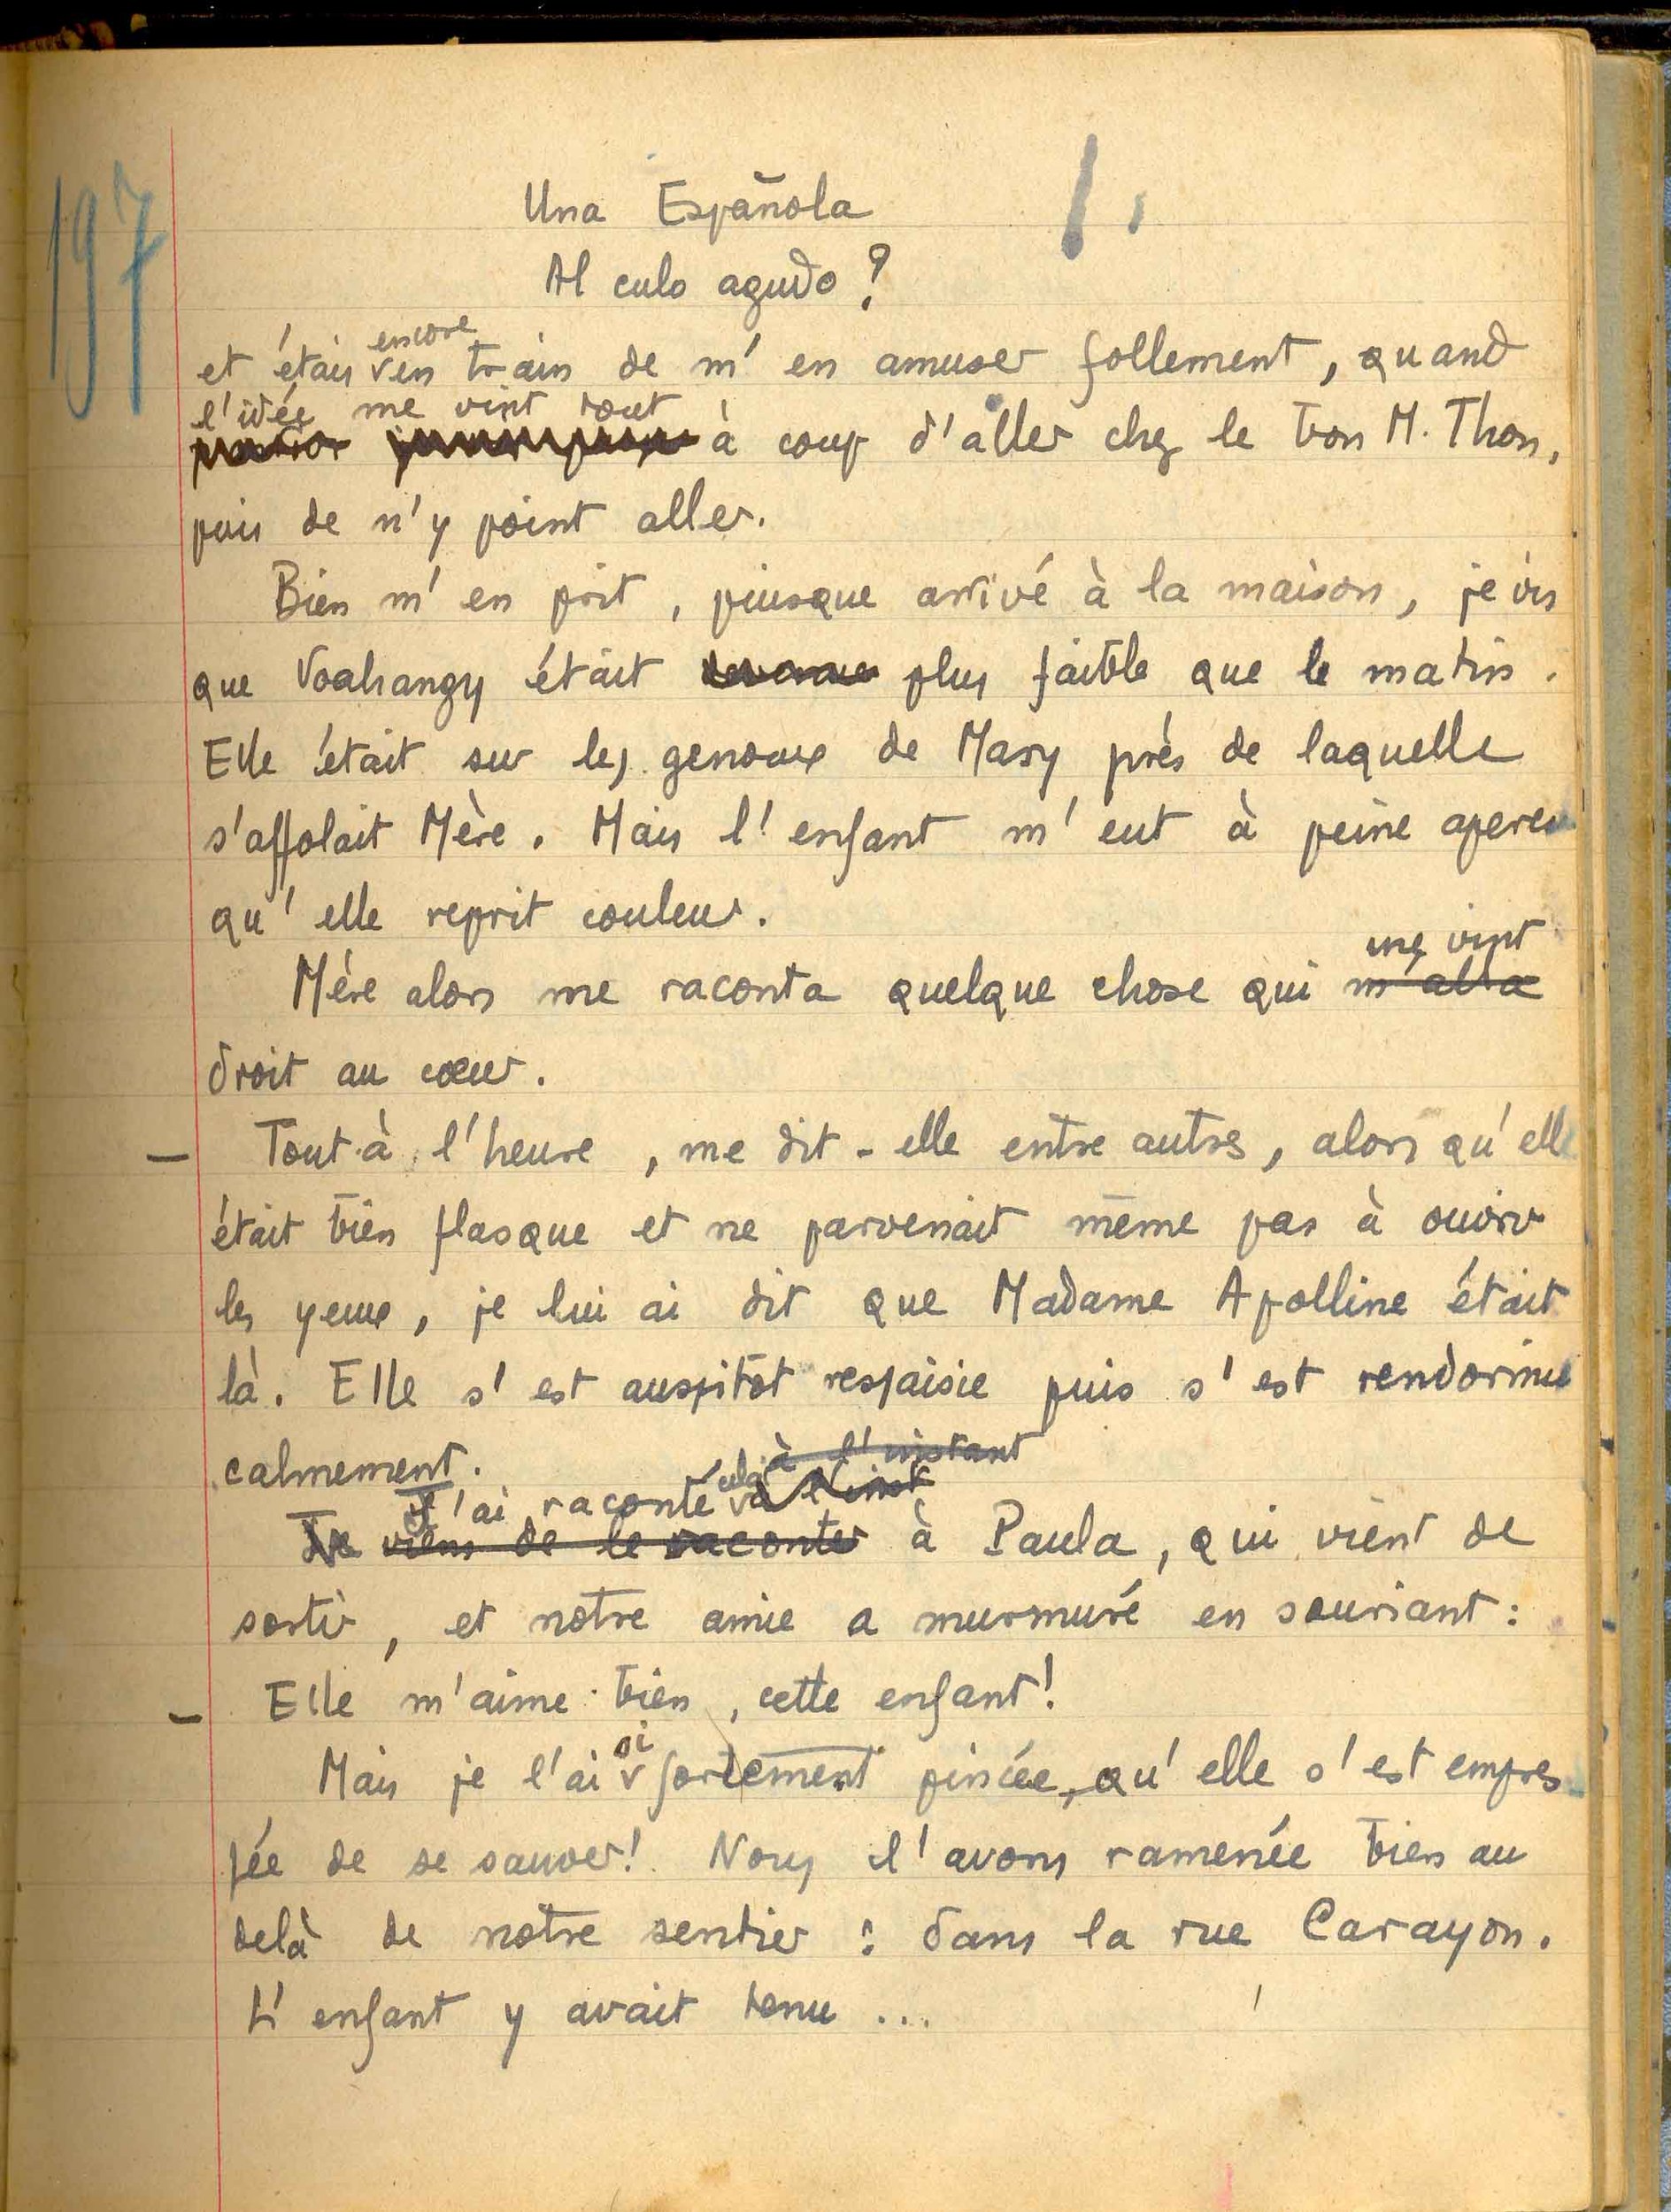 197
Una Española
Al culo agudo ?
et étais encore en train de m'en amuser follement, quand
l'idée me vint tout à coup d'aller chez le bon M. Thon,
puis de n'y point aller.
Bien m'en prit, puisque arrivé à la maison, je vis
que Voahangy était plus faible que le matin.
Elle était sur les genoux de Mary près de laquelle
s'affolait Mère. Mais l'enfant m'eut à peine aperçu
qu'elle reprit couleur.
Mère alors me raconta quelque chose qui m'alla me vint
droit au cœur.
— Tout à l'heure, me dit-elle entre autres, alors qu'elle
était bien flasque et ne parvenait même pas à ouvrir
les yeux, je lui ai dit que Madame Apolline était
là. Elle s'est aussitôt ressaisie puis s'est rendormie
calmement.
à l'instant
J'ai raconté cela à l'inst
Je viens de le raconter à Paula, qui vient de
sortir, et notre amie a murmuré en souriant :
— Elle m'aime bien, cette enfant !
Mais je l'ai si fortement pincée, qu'elle s'est empres-
sée de se sauver ! Nous l'avons ramenée bien au
delà de notre sentier : dans la rue Carayon.
L'enfant y avait tenu ...